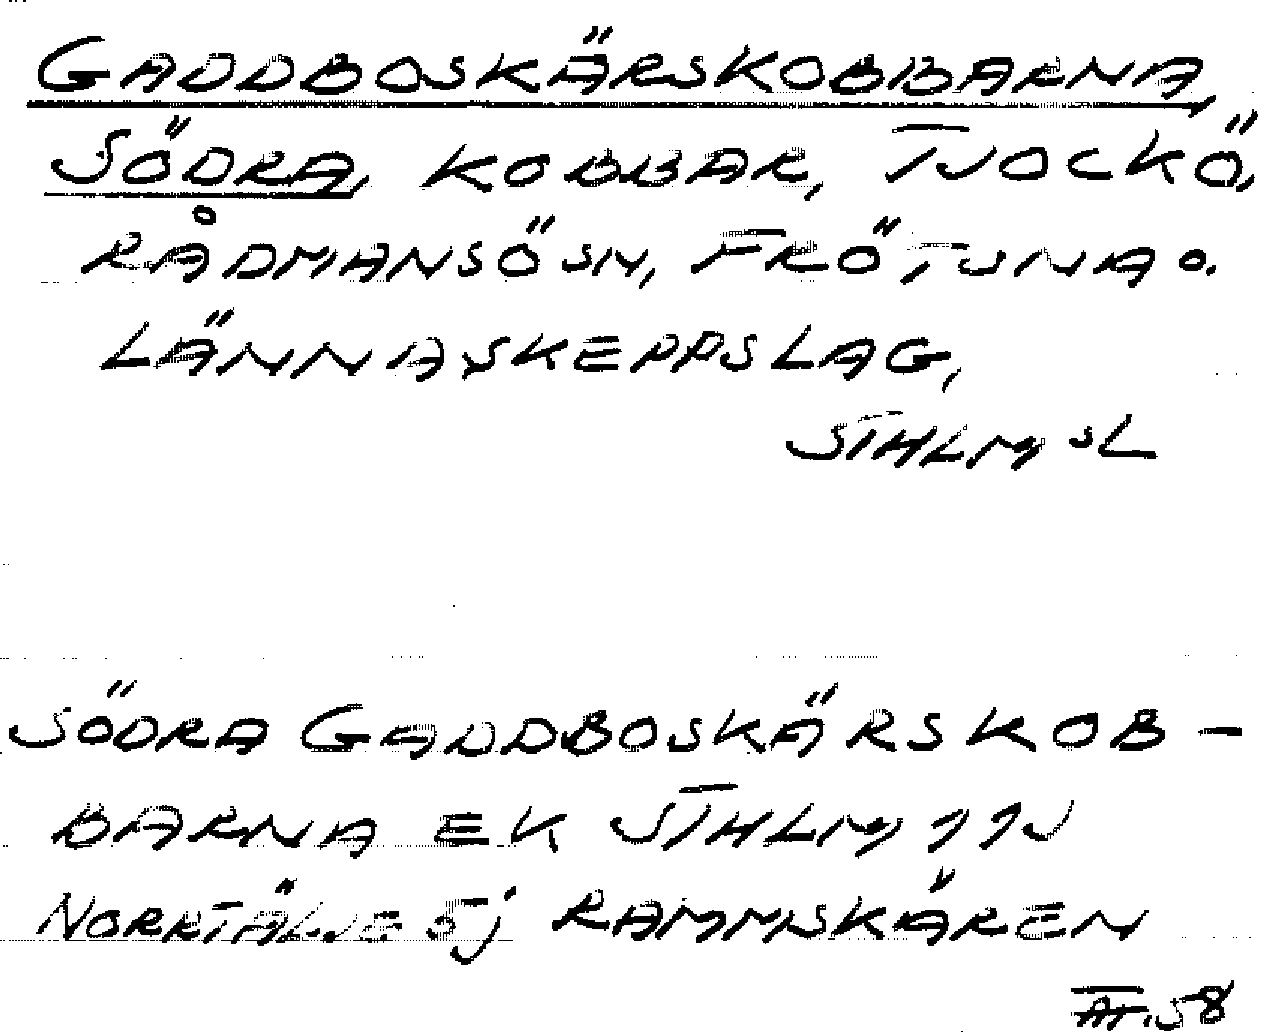 GADDBOSKÄRSKOBBARNA,
SÖDRA, KOBBAR, TJOCKÖ,
RÅDMANSÖ SN, FRÖTUNA O.
LÄNNA SKEPPSLAG,
STHLM SL
SÖDRA GADDBOSKÄRSKOB-
BARNA EK STHLM 11J
NORRTÄLJE 5j RAMMSKÄREN
58